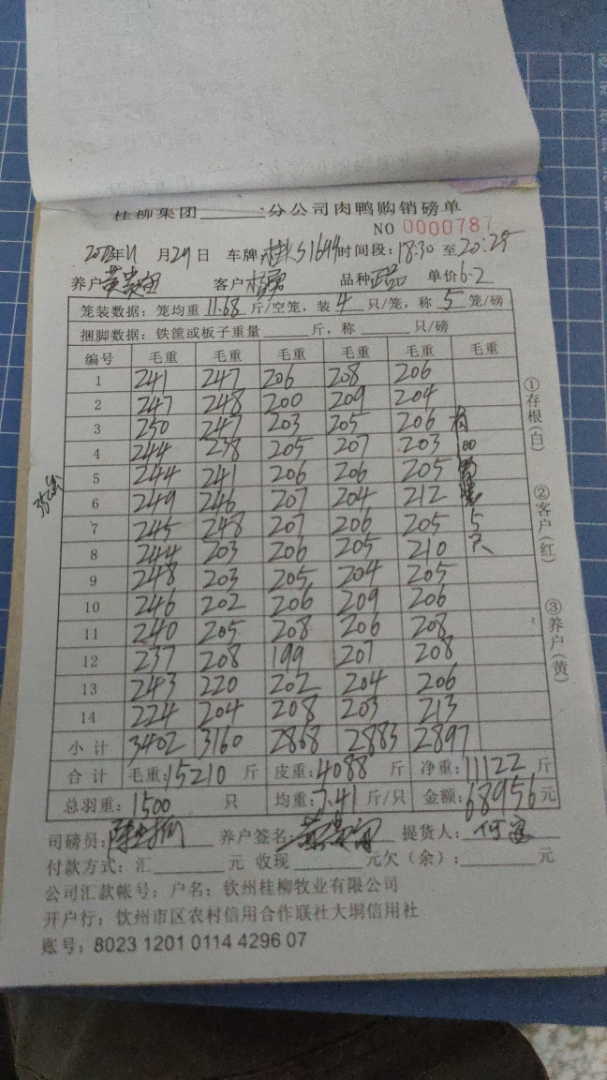 桂柳集团______分公司肉鸭购销磅单
NO 0000787
月29日 车牌 S1699 时间段:18:30 至20:25
养户 客户 品种 正品 单价6.2
笼装数据:笼均重 11.68 斤/空笼,装 4 只/笼,称 5 笼/磅
捆脚数据:铁筐或板子重量______斤,称______只/磅
编号 毛重 毛重 毛重 毛重 毛重 毛重
1 241 247 206 208 206
2 247 248 200 209 204
3 250 247 203 205 206 有
4 244 238 205 207 203 100
5 244 241 206 206 205
6 249 246 207 204 212 装
7 245 248 207 206 205 5
8 244 203 206 205 210 只
9 248 203 205 204 205
10 246 202 206 209 206
11 240 205 208 206 208
12 237 208 199 207 208
13 243 220 202 204 206
14 224 204 208 203 213
小计 3402 3160 2868 2883 2897
合计 毛重:15210 斤 皮重:4088 斤 净重:11122 斤
总羽重:1500 只 均重:7.41 斤/只 金额:68956 元
①存根(白)
②客户(红)
③养户(黄)
司磅员: 养户签名: 提货人:
付款方式:汇______元 收现______元欠(余):______元
公司汇款帐号:户名:钦州桂柳牧业有限公司
开户行:钦州市区农村信用合作联社大垌信用社
账号:8023 1201 0114 4296 07